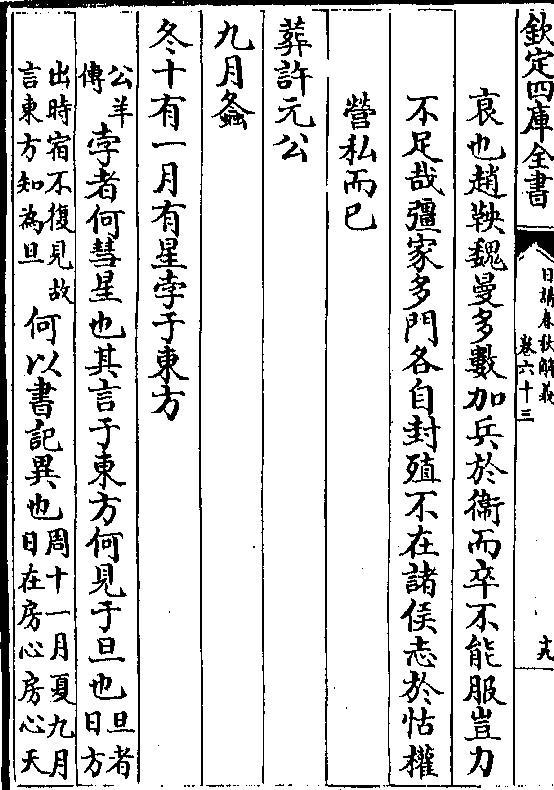 欽定四庫全書
日講春秋解義
卷六十三
十九
衰也趙鞅魏曼多數加兵於衞而卒不能服豈力
不足哉彊家多門各自封殖不在諸侯志於怙權
營私而已
葬許元公
九月螽
冬十有一月有星孛于東方
公羊
傳
孛者何彗星也其言于東方何見于旦也
旦者
日方
出時宿不復見故
言東方知為旦
何以書記異也
周十一月夏九月
日在房心房心天